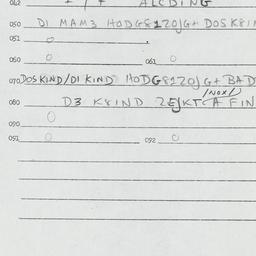 042 ALCDING
050 DI MAM3 HODG8120JG+ DOSK8I
051 0
060 0 061 0
070 DOSKIND/DI KIND HODG8120JG+ BAD
/NOX/
080 D3 K8IND ZEJKTCA FIN
090 0
091 0 092 0